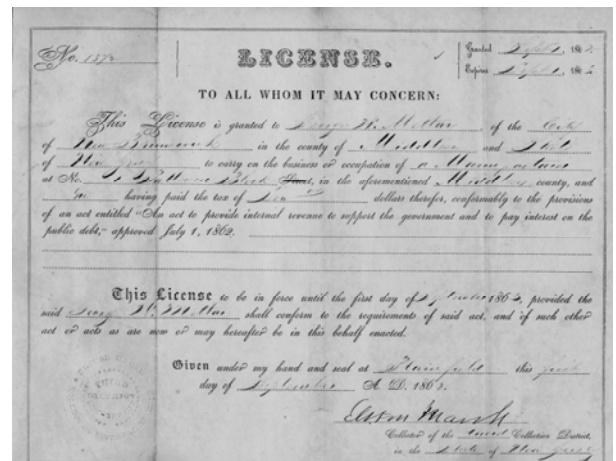 No. 1373
LICENSE.
Granted Sept 1, 186
Expires Sept 1, 186
TO ALL WHOM IT MAY CONCERN:
This License is granted to George W. Metlar of the City
of New Brunswick in the county of Middlesex and State
of New Jersey to carry on the business or occupation of a Manufacturer
at No. Block Street, in the aforementioned Middlesex county, and
he having paid the tax of Ten dollars therefor, conformably to the provisions
of an act entitled "An act to provide internal revenue to support the government and to pay interest on the
public debt," approved July 1, 1862.
This License to be in force until the first day of September 1863, provided the
said George W. Metlar shall conform to the requirements of said act, and of such other
act or acts as are now or may hereafter be in this behalf enacted.
Given under my hand and seal at Plainfield this first
day of September A. D. 1862.
Elston Marsh
Collector of the Third Collection District,
in the State of New Jersey